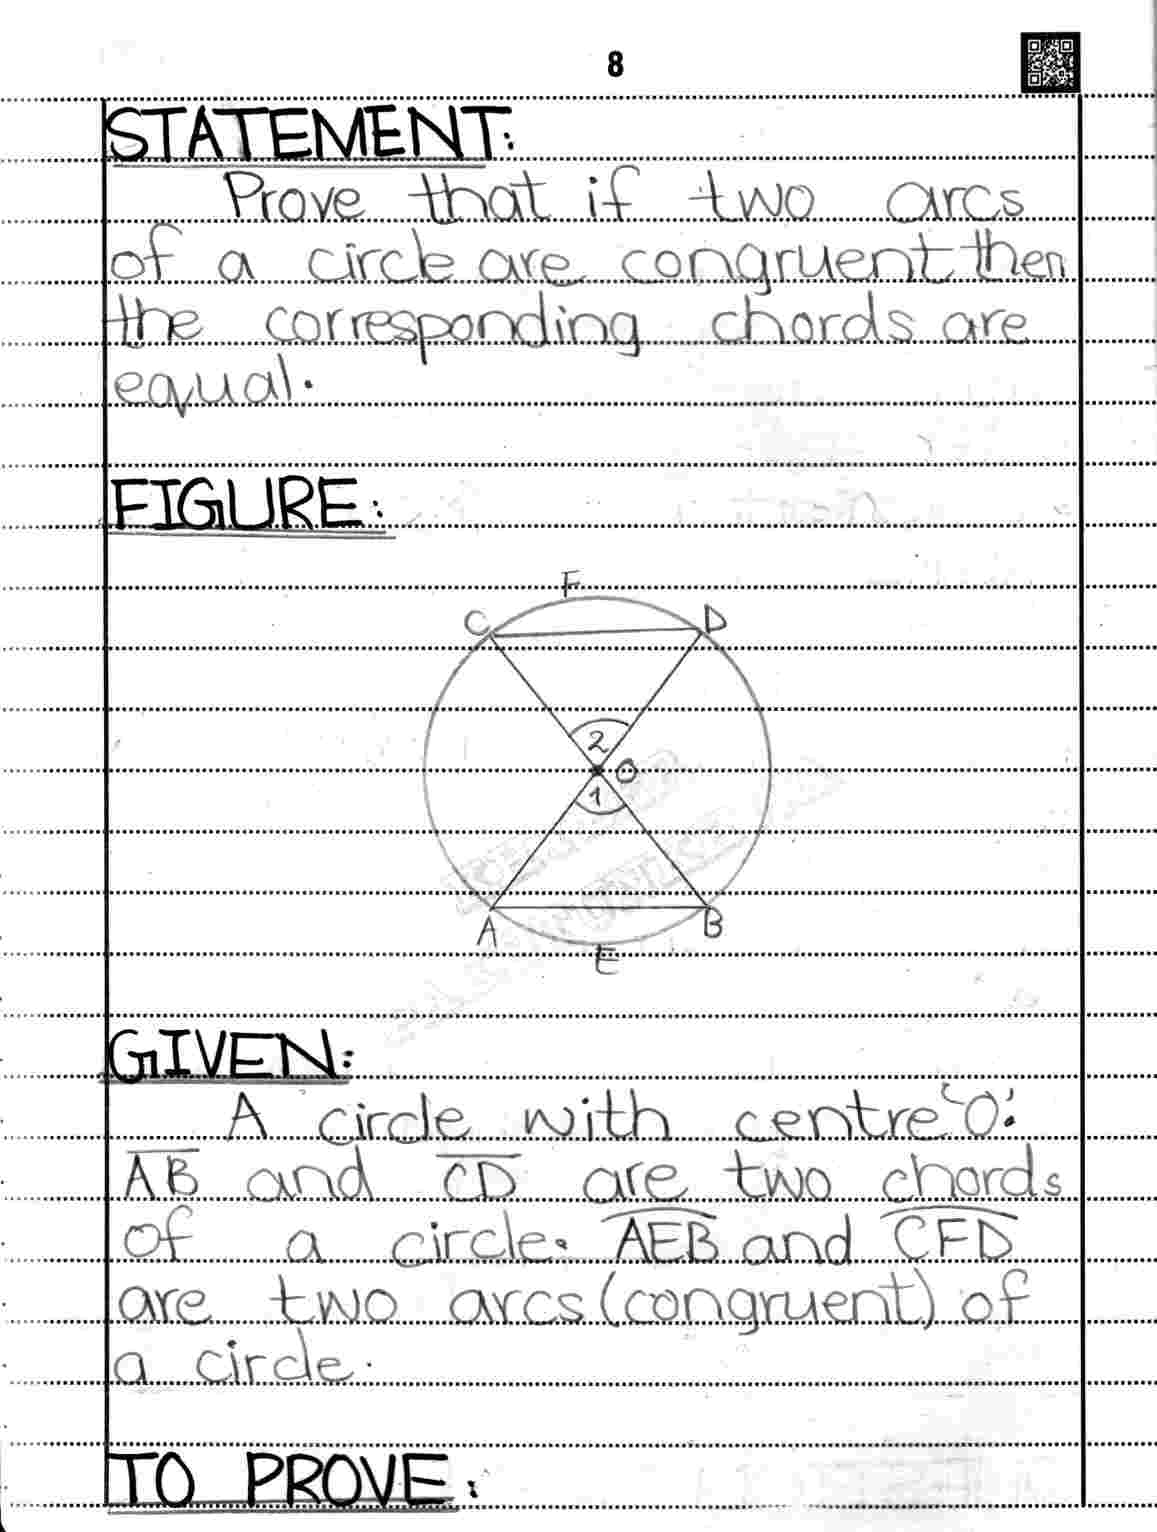 8
STATEMENT:
Prove that if two arcs
of a circle are congruent then
the corresponding chords are
equal.
FIGURE:
F
C D
2
O
1
A B
E
GIVEN:
A circle with centre 'O'.
A̅B̅ and C̅D̅ are two chords
of a circle. A͡EB and C͡FD
are two arcs (congruent) of
a circle.
TO PROVE: